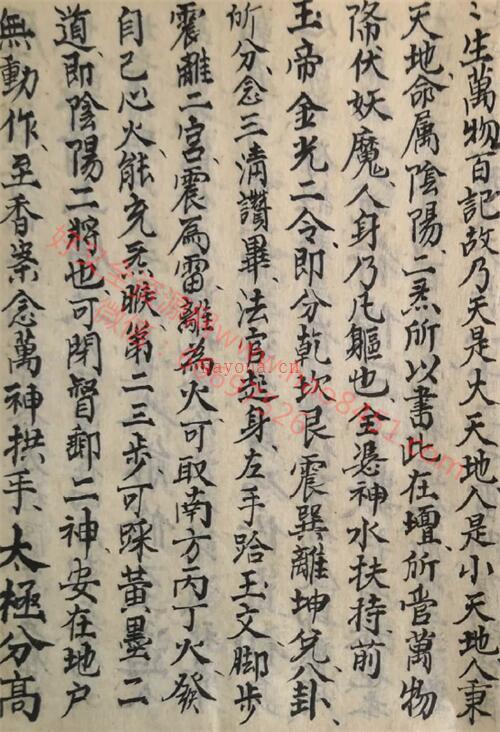 〻生萬物百記故乃天是大天地人是小天地人秉
天地命属陰陽、二炁所以書此在壇所管萬物
降伏妖魔、人身乃凡軀也、全憑神水扶持、前
玉帝金光二令、即分乾坎艮震巽離坤兌八卦、
所分、念三清讚畢、法官起身、左手跲玉文、脚步
震離二宮、震為雷、離為火、可取南方丙丁火發
自己心火、能充炁、第二三步、可踩黃墨二
道、即陰陽二將也、可閉督郵二神、安在地戶
無動作、至香案念萬神拱手、太極分高